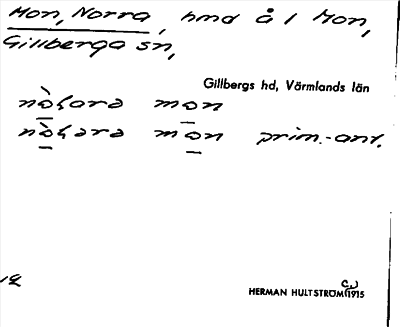 Mon, Norra, hmd å / Mon,
Gillberga sn,
Gillbergs hd, Värmlands län
mon
mon prim.-ant.
HERMAN HULTSTRÖM 1915